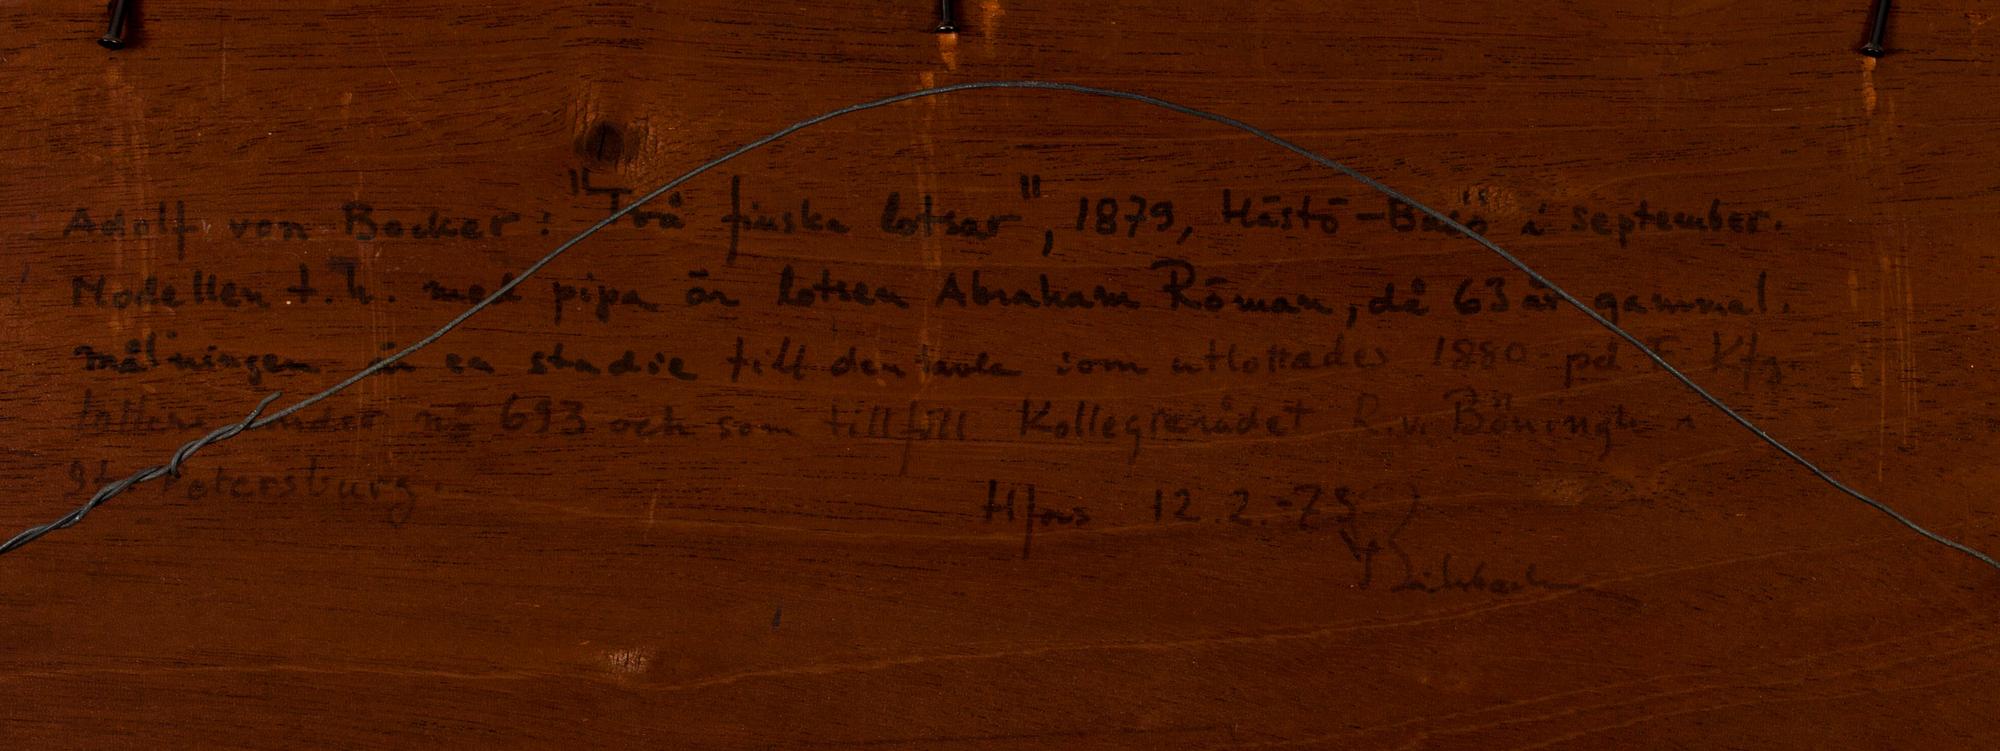 Adolf von Becker: "Två finska lotsar", 1879, Hästö-Busö i september.
Modellen t.h. med pipa är lotsen Abraham Röman, då 63 år gammal.
målningen är en studie till den tavla som utlottades 1880 på F. Kfg.
lotteri under no 693 och som tillföll Kollegierådet R.v. Böningh
St. Petersburg.
Hfors 12.2.-75